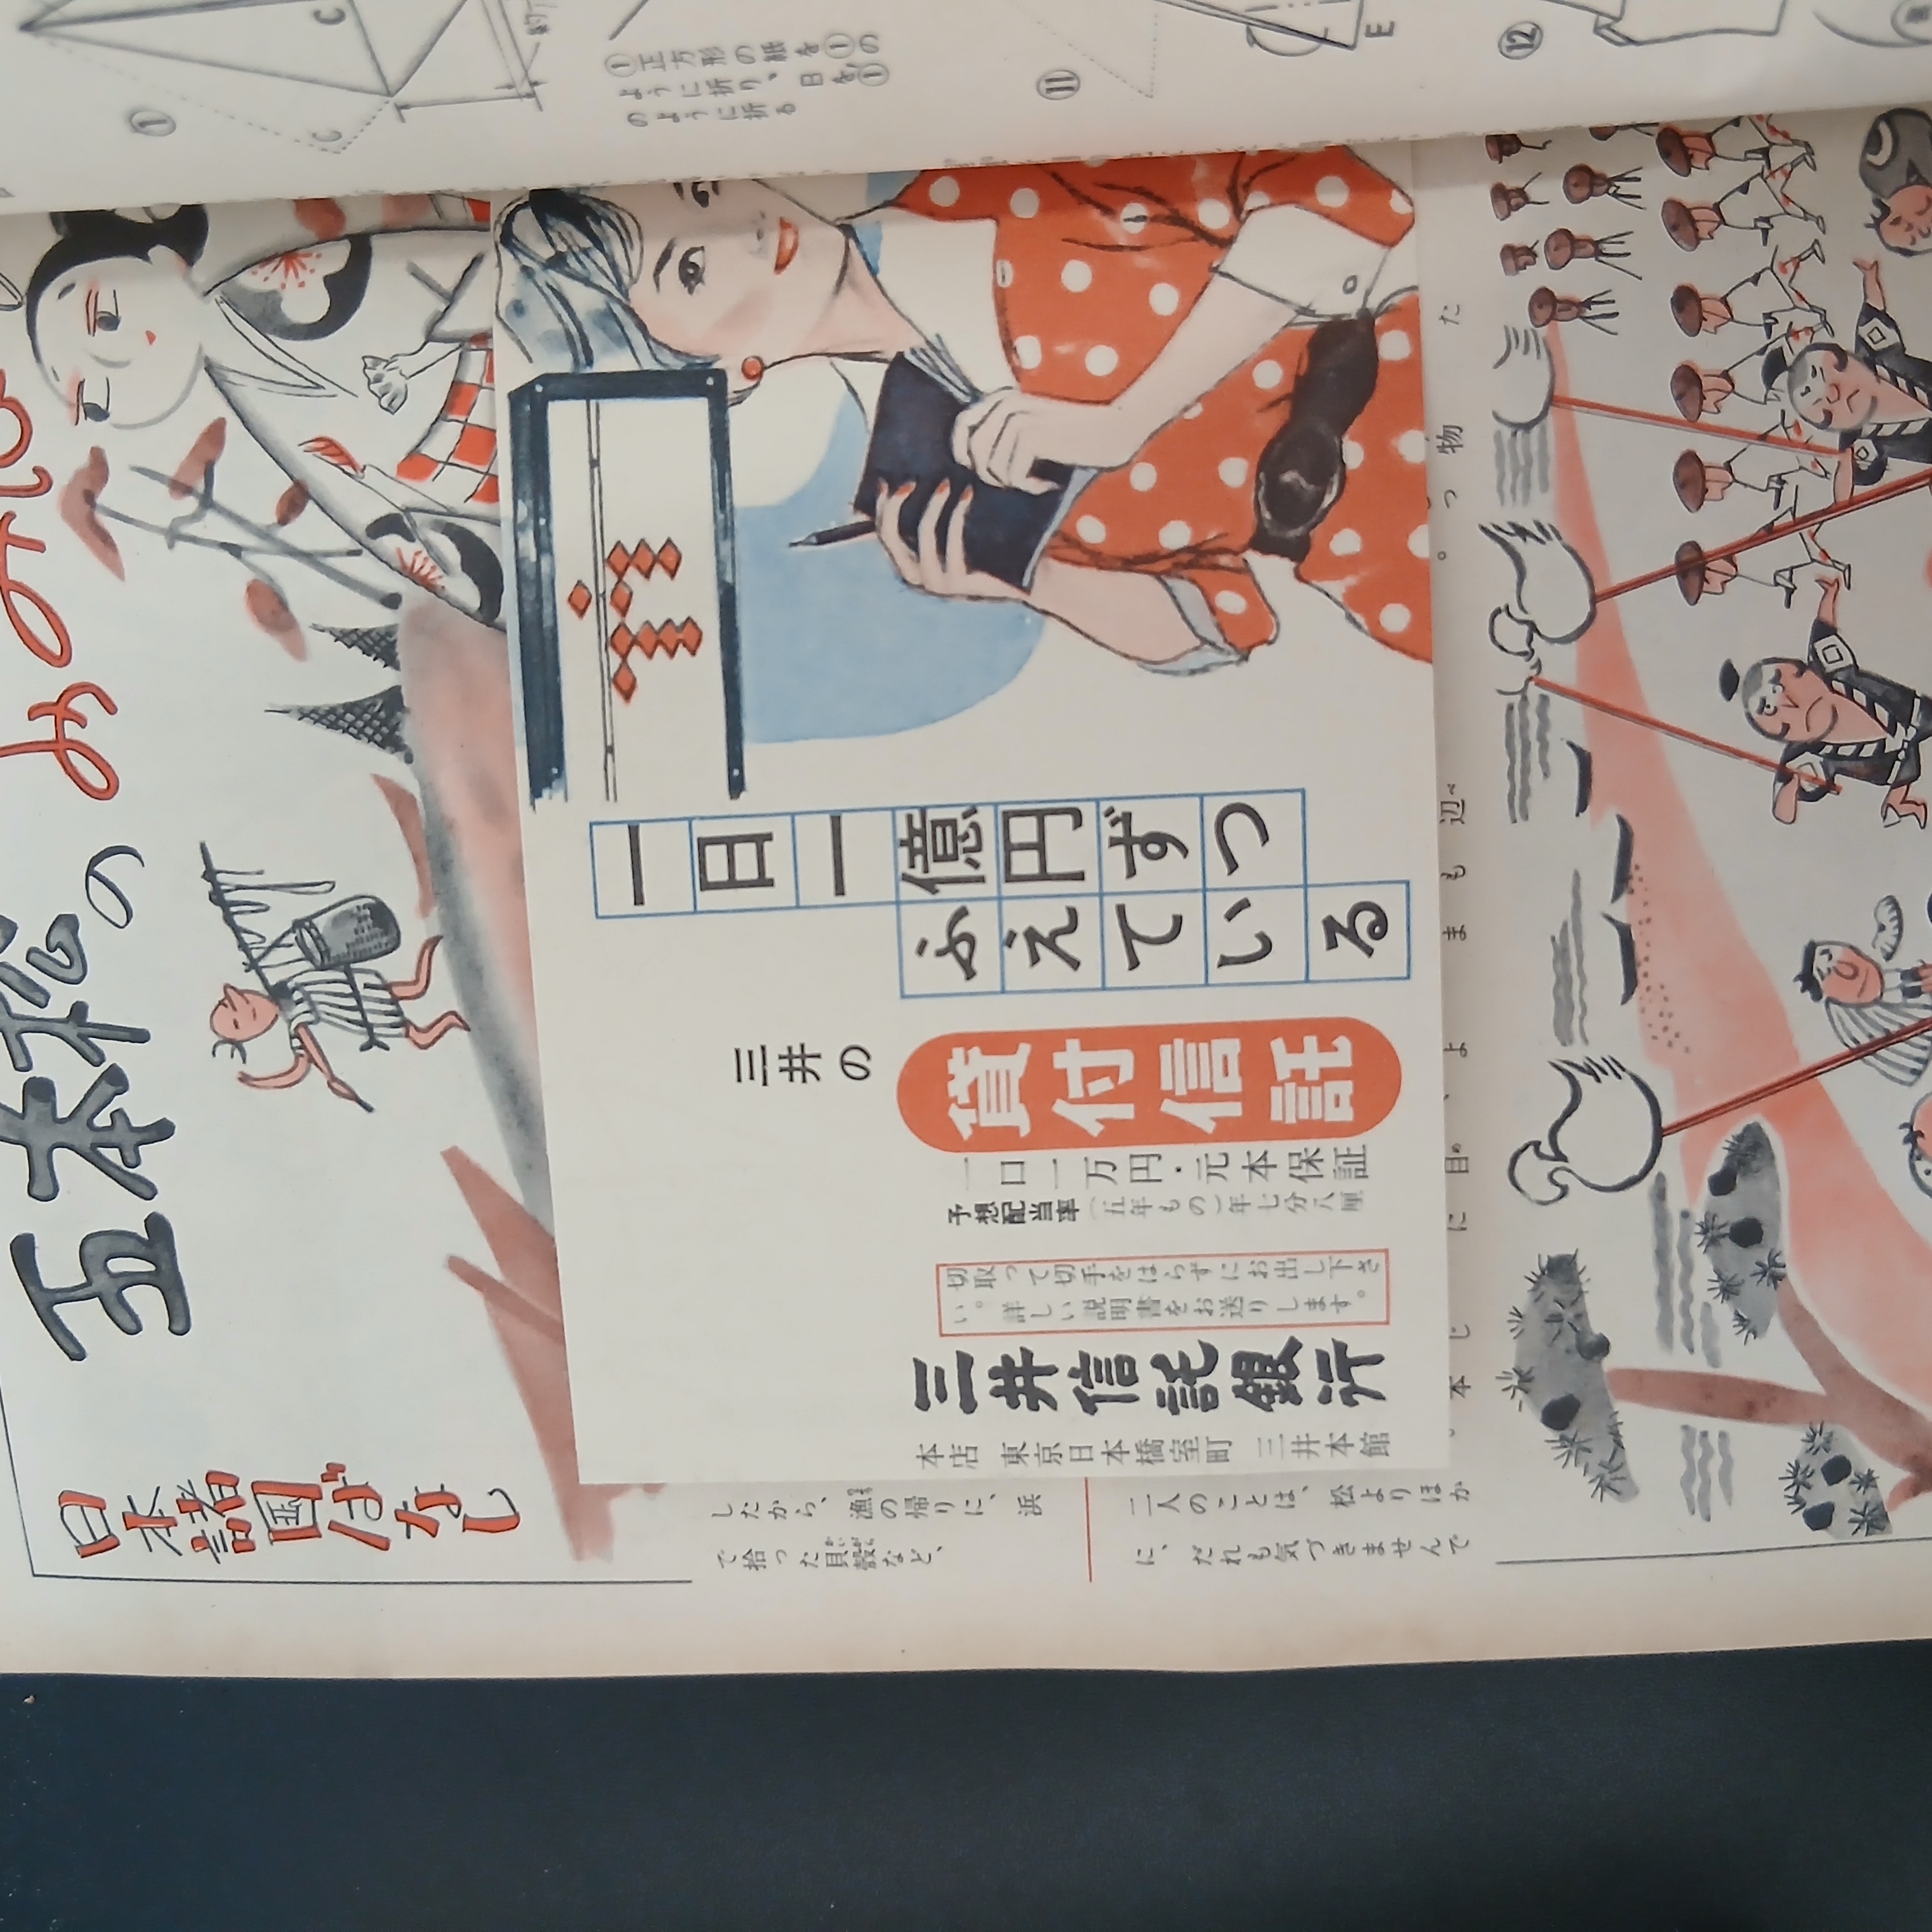 ①正方形の紙を①の
ように折り、日を①
のように折る
①
C
C
⑪
E
⑫
日本諸国ばなし
五本松の
一日一億円ずつ
ふえている
三井の
貸付信託
一口一万円・元本保証
予想配当率(五年もの)年七分八厘
切取って切手をはらずにお出し下さ
い。詳しい説明書をお送りします。
三井信託銀行
本店 東京日本橋室町 三井本館
したから、漁の帰りに、浜
で拾った貝殻など、
二人のことは、松よりほか
に、だれも気づきませんで